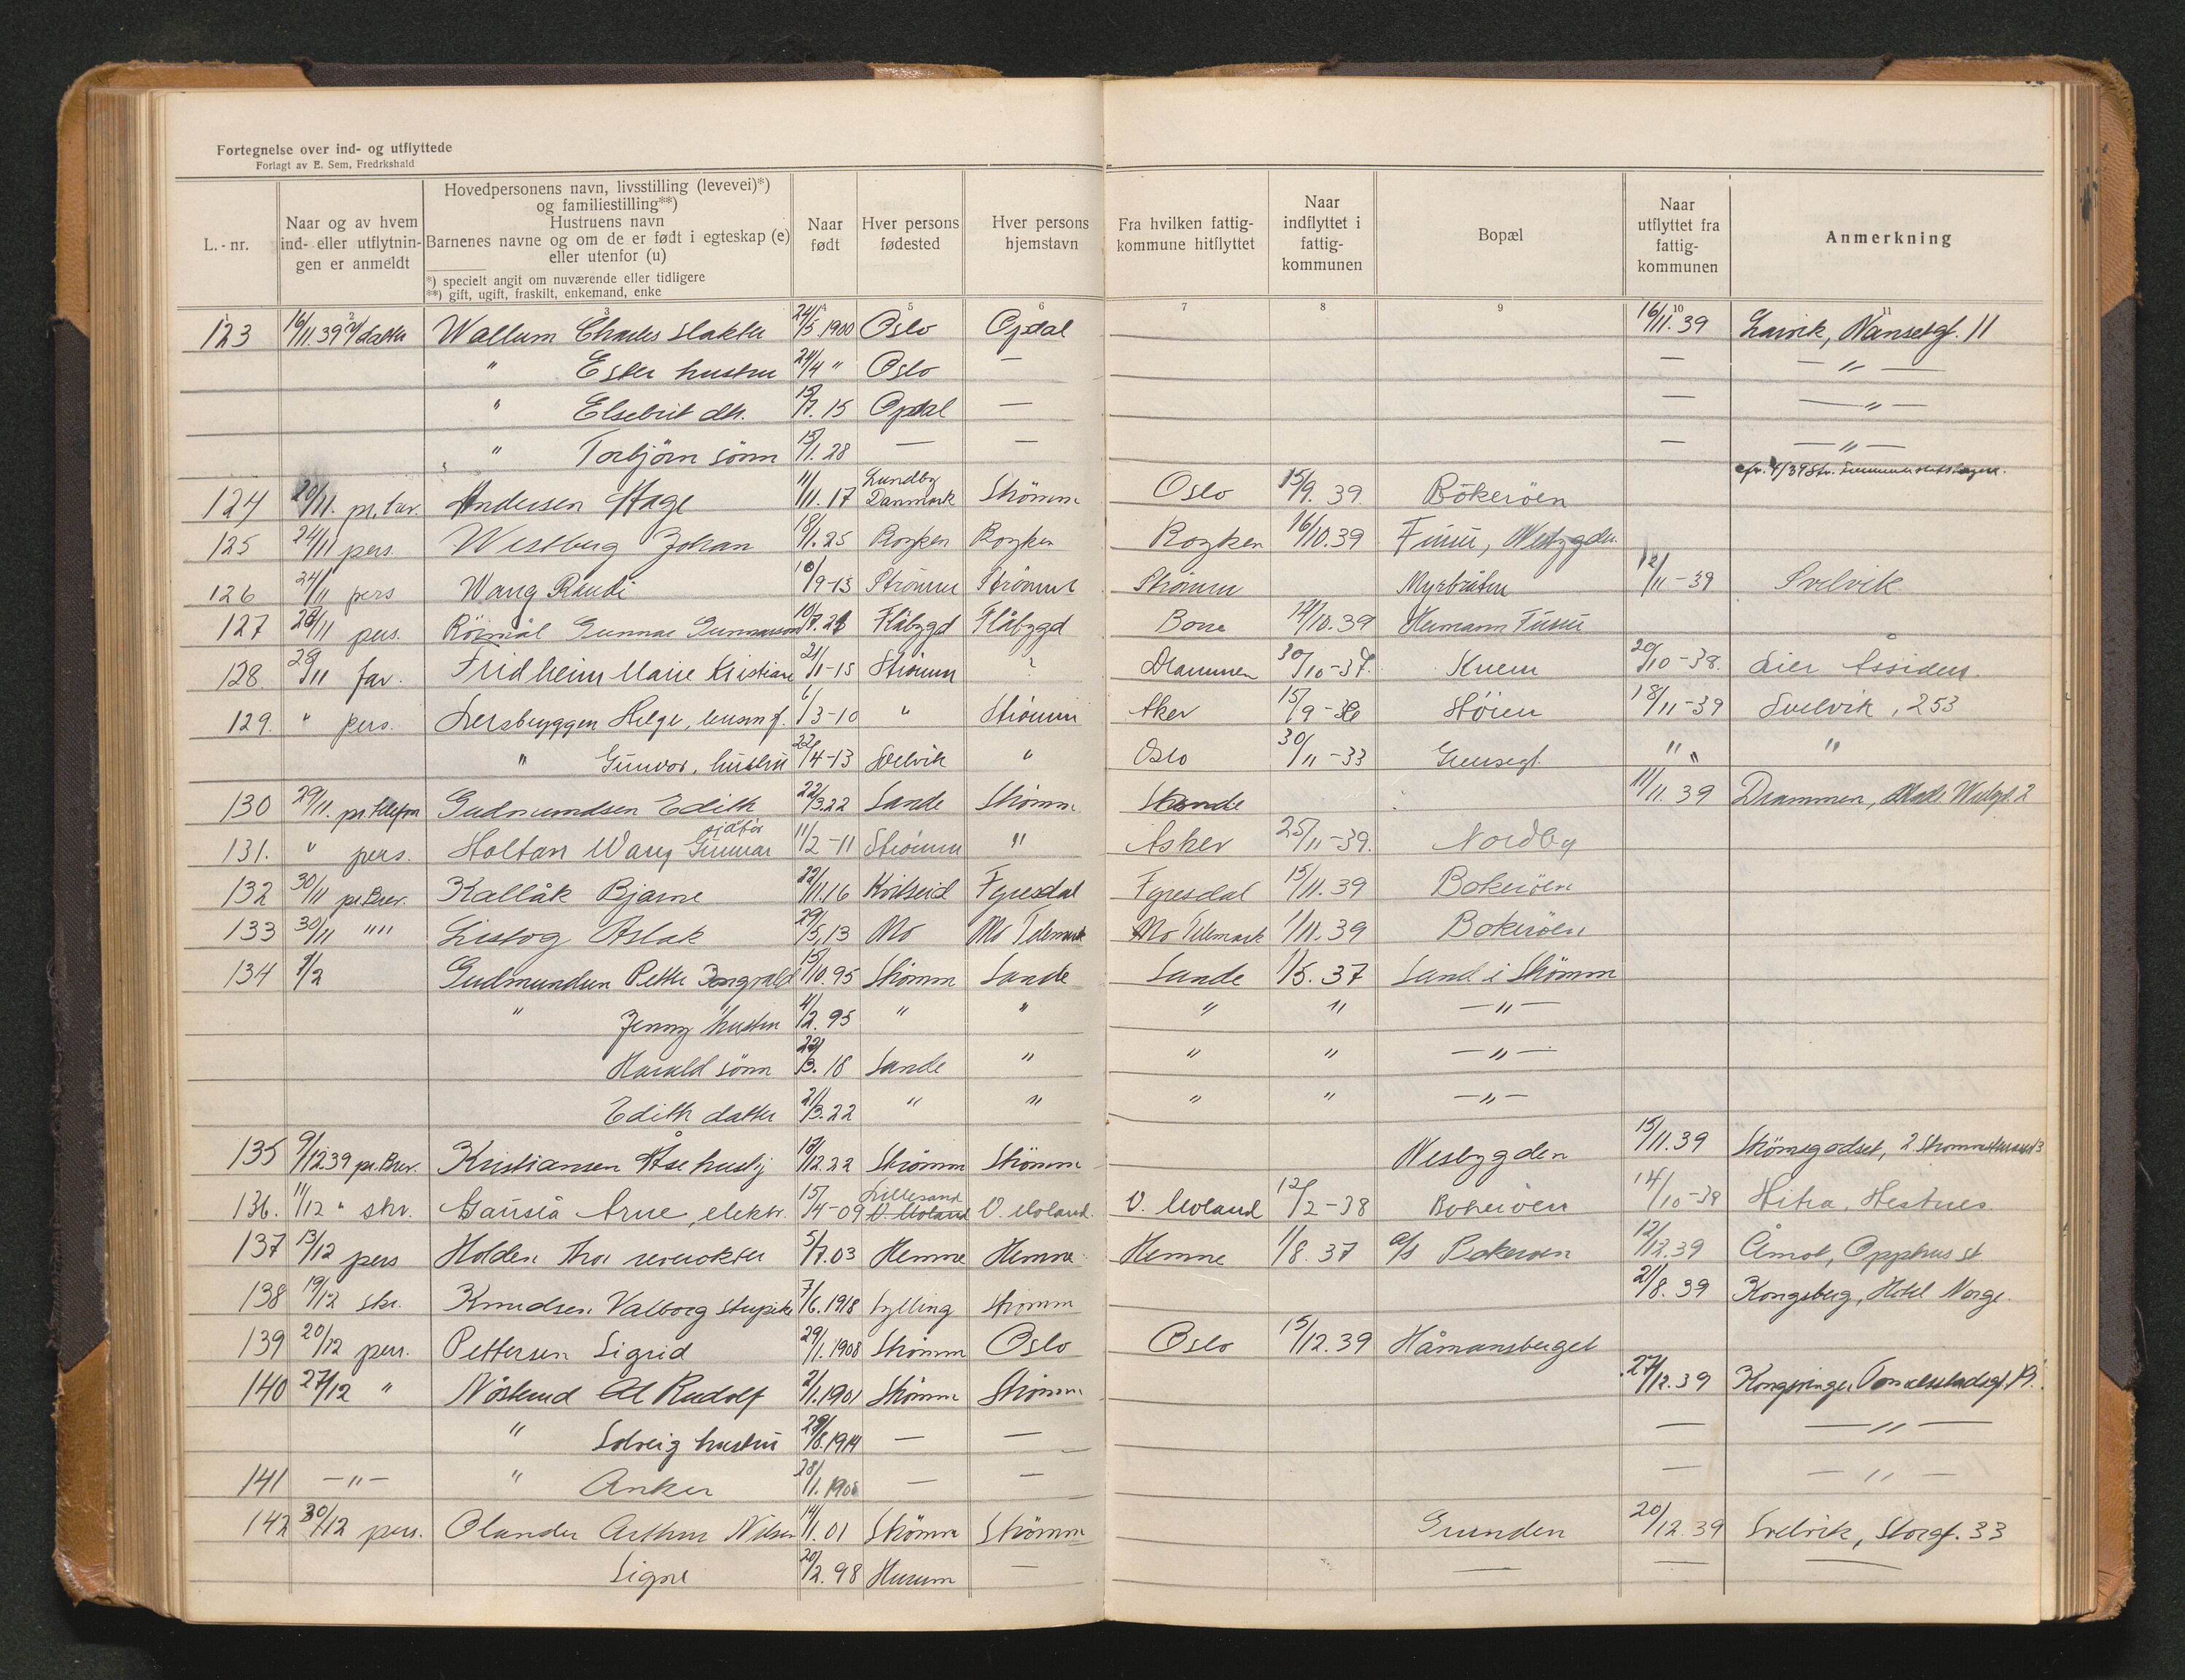 Fortegnelse over ind- og utflyttede
Forlagt av E. Sem, Fredrkshald
L.-nr.
Naar og av hvem ind- eller utflytningen er anmeldt
Hovedpersonens navn, livsstilling (levevei)*) og familiestilling**) Hustruens navn Barnenes navne og om de er født i egteskap (e) eller utenfor (u)
*) specielt angit om nuværende eller tidligere
**) gift, ugift, fraskilt, enkemand, enke
Naar født
Hver persons fødested
Hver persons hjemstavn
Fra hvilken fattigkommune hitflyttet
Naar indflyttet i fattigkommunen
Bopæl
Naar utflyttet fra fattigkommunen
Anmerkning
2 3 4 5 6 7 8 9 10 11
123 16/11.39 Wallum Charles slakter 24/5 1900 Oslo Opdal 16/11.39 Larvik, Nansetgt. 11
" Ester hustru 24/4 " Oslo — — — " —
" Elsebrit dtr. 15 Opdal — — — " —
" Torbjörn sönn 15/1.28 — — — — " —
124 20/11. Andersen Hage 11/11.17 Lundby Danmark Strömm Oslo 15/9.39 Bökeröen
125 24/11 pers. Westberg Johan 18/1.25 Royken Royken Royken 16/10.39
126 24/11 pers Wang Randi 10/9-13 Strömm Strömm Strömm Myrbråten 12/11-39 Svelvik
127 28/11 pers. Gunnar Gunnarson Flåbygd Flåbygd Borre 14/10.39 Hermann
128. 28/11 Fridheim Marie Kristiane 21/11-15 Strömm ? Drammen 30/10-37. Knem 20/10-38. Lier Åssiden
129. " pers. Lersbryggen Helge, 6/3-10 " Strömm Aker 15/9-36 Höien 18/11-39 Svelvik, 253
" Gunvor, hustru 22/4-13 Svelvik " Oslo 30/11-33 " " "
130 29/11. pr. telefon Gudmundsen Edith 22/3.22 Sande Strömm Sande 11/11.39 Drammen,
131. " pers. Holtan Wang Gunnar sjåför 11/2-11 Strömm " Asker 25/11-39. Nordby
132 30/11 pr. Brev. Kallåk Bjarne 22/11.16 Kviteseid Fyresdal Fyresdal 15/11.39 Bokeröen
133 30/11 " " Listog Aslak 29/5.13 Mo Mo Telemark Mo Telemark 1/11.39 Bokeröen
134 1/2 Gudmundsen Petter 15/10.95 Strömm Sande Sande 1/5.37 Sand i Strömm
" Jenny hustru 4/12.95 " " " " — " —
Harald sönn 22/3.18 Sande " " " — " —
Edith datter 21/3.22 " " " " — " —
135 9/12.39 pr. Brev. Kristiansen Åse hushj 12.22 Strömm Strömm Nesbygden 15/11.39 Strömsgodset, 2.
136. 11/12 " skr. Gauslå Arne, elektr. 15/4-09 Lillesand V. Moland V. Moland. V. Moland 12/2-38 Bokeröen 14/10-39 Hitra, Hestnes
137 13/12 pers Holden Thor 5/7.03 Hemne Hemne Hemne 1/8.37 a/s Bokeroen 12/12.39 Åmot, Opphus st
138 19/12 skr. Knudsen Valborg 7/6.1918 Sylling Strömm 21/8.39 Kongsberg, Hotel Norge.
139 20/12 pers. Pettersen Sigrid 29/1.1908 Strömm Oslo Oslo 15/12.39 Håmansberget
140 27/12 " Nöstrud Al Rudolf 2/1.1901 Strömm Strömm 27/12.39 Kongsvinger
" Solveig hustru 29/8.1914 — — — — " —
141 — " — " Anker 28/1. — — — — " —
142 30/12 pers. Olander Arthur Nilsen 14/1.01 Strömm Strömm Grunden 20/12.39 Svelvik, Storgt. 33
Signe 20/2.98 Hurum — — — —